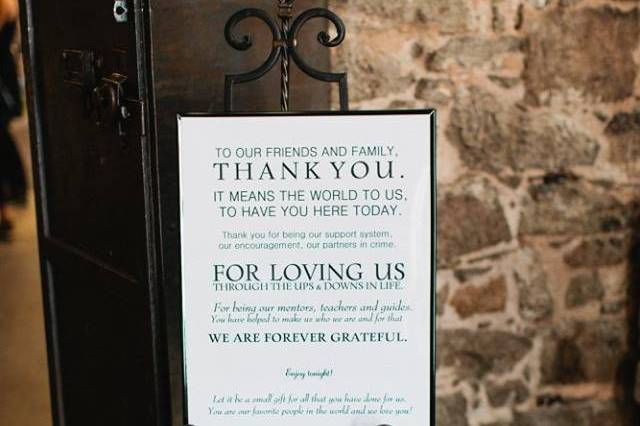 TO OUR FRIENDS AND FAMILY,
THANK YOU.
IT MEANS THE WORLD TO US,
TO HAVE YOU HERE TODAY.
Thank you for being our support system,
our encouragement, our partners in crime.
FOR LOVING US
THROUGH THE UPS & DOWNS IN LIFE.
For being our mentors, teachers and guides.
You have helped to make us who we are and for that
WE ARE FOREVER GRATEFUL.
Enjoy tonight!
Let it be a small gift for all that you have done for us.
You are our favorite people in the world and we love you!